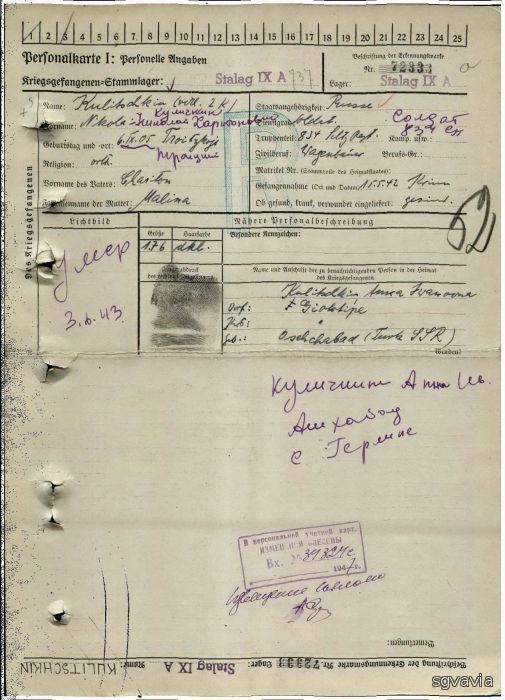 1 2 3 4 5 6 7 8 9 10 11 12 13 14 15 16 17 18 19 20 21 22 23 24 25
Personalkarte I: Personelle Angaben
Beschriftung der Erkennungsmarke
Kriegsgefangenen-Stammlager: Stalag IX A 737
Nr. 72933
Lager: Stalag IX A
Des Kriegsgefangenen
Name: Kulitschkin
Staatsangehörigkeit: Russe
Куличкин
Vorname: Nikolai Николай Харитонович
Dienstgrad: Soldat Солдат
Truppenteil: 834 Komp. usw.: 834 сп
Geburtstag und -ort: 6.IX.05 Troitzkoje
Троицкий
Zivilberuf: Berufs-Gr.:
Religion: orth.
Matrikel Nr. (Stammrolle des Heimatstaates):
Vorname des Vaters: Chariton
Gefangennahme (Ort und Datum): 15.5.42 Krim
Familienname der Mutter: Malina
Ob gesund, krank, verwundet eingeliefert: gesund
Lichtbild
Nähere Personalbeschreibung
Größe Haarfarbe Besondere Kennzeichen:
1.76 dkl.
52
умер
3.6.43.
Fingerabdruck
des rechten Zeigefingers
Name und Anschrift der zu benachrichtigenden Person in der Heimat
des Kriegsgefangenen
Kulitschkin Anna Ivanovna
Dorf:
Aschchabad (Turk. SSR)
Wenden!
Куличкин Анна Ив.
Ашхабад
с Германс
В персональной учетной карт.
ИЗМЕНЕНИЯ ВНЕСЕНЫ
Вх. № 39324с
1947 г.
Bemerkungen:
Beschriftung der Erkennungsmarke Nr. 72933 Lager: Stalag IX A Name: KULITSCHKIN
sgvavia